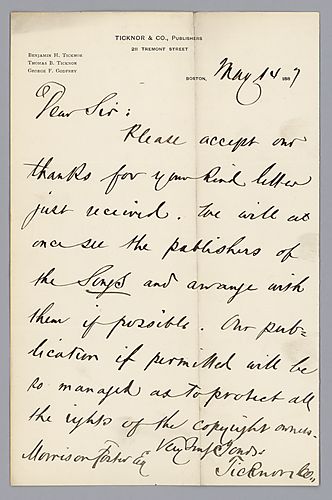 TICKNOR & CO., PUBLISHERS
211 TREMONT STREET
BENJAMIN H. TICKNOR
THOMAS B. TICKNOR
GEORGE F. GODFREY
BOSTON, May 14 1887
Dear Sir:
Please accept our
thanks for your kind letter
just received. We will at
once see the publishers of
the Songs and arrange with
them if possible. Our pub-
lication if permitted will be
so managed as to protect all
the rights of the copyright owners.
Very Truly Yours
Morrison Foster Esq Ticknor & Co.,